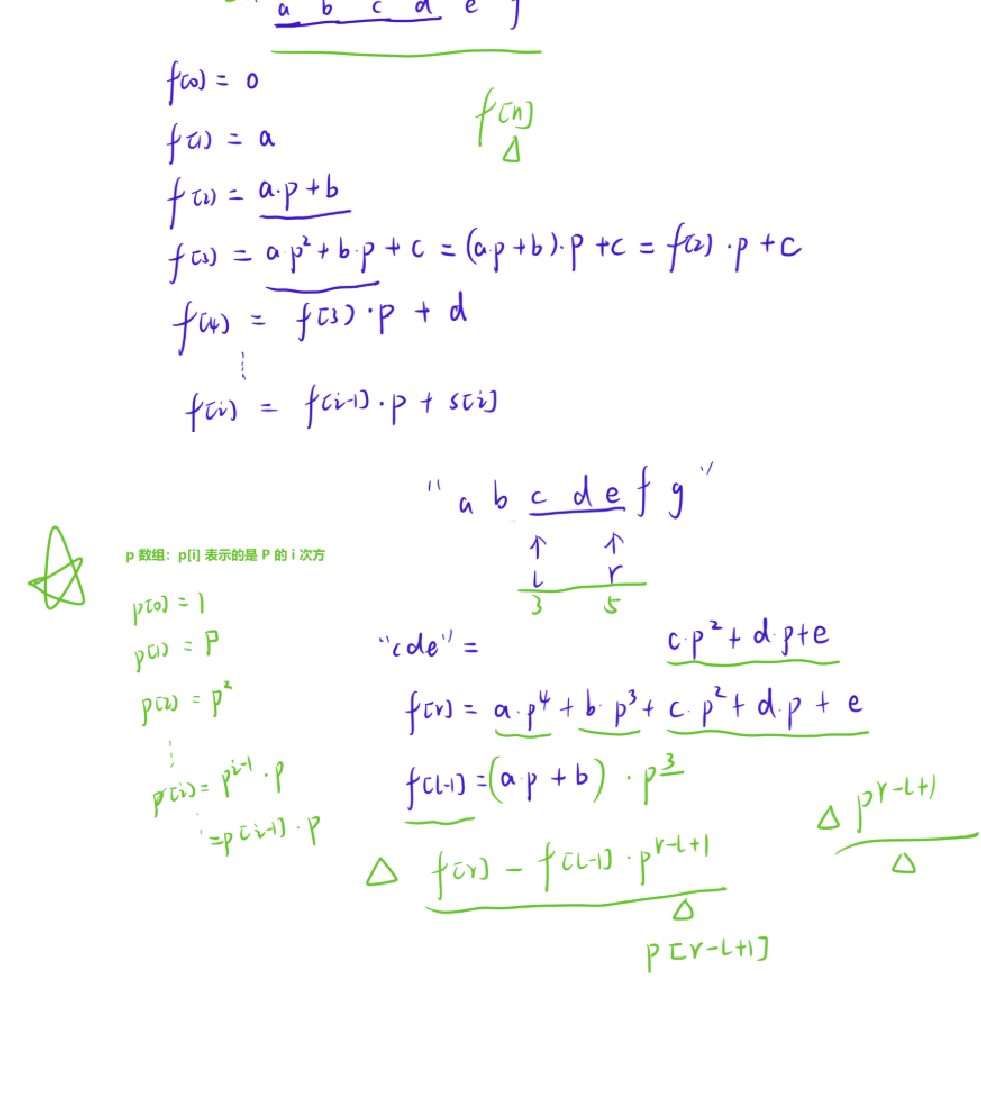 a b c d e f
f[0] = 0
f[n]
f[1] = a
f[2] = a·p + b
f[3] = a·p² + b·p + c = (a·p + b)·p + c = f[2]·p + c
f[4] = f[3]·p + d
f[i] = f[i-1]·p + s[i]
"a b c d e f g"
↑ ↑
L r
3 5
p 数组：p[i] 表示的是 P 的 i 次方
p[0] = 1
p[1] = P
p[2] = p²
p[i] = p^{i-1}·p
= p[i-1]·p
"cde" = c·p² + d·p + e
f[r] = a·p⁴ + b·p³ + c·p² + d·p + e
f[L-1] = (a·p + b)·p³
Δ p^{r-L+1}
Δ
Δ f[r] - f[L-1]·p^{r-L+1}
Δ
p[r-L+1]